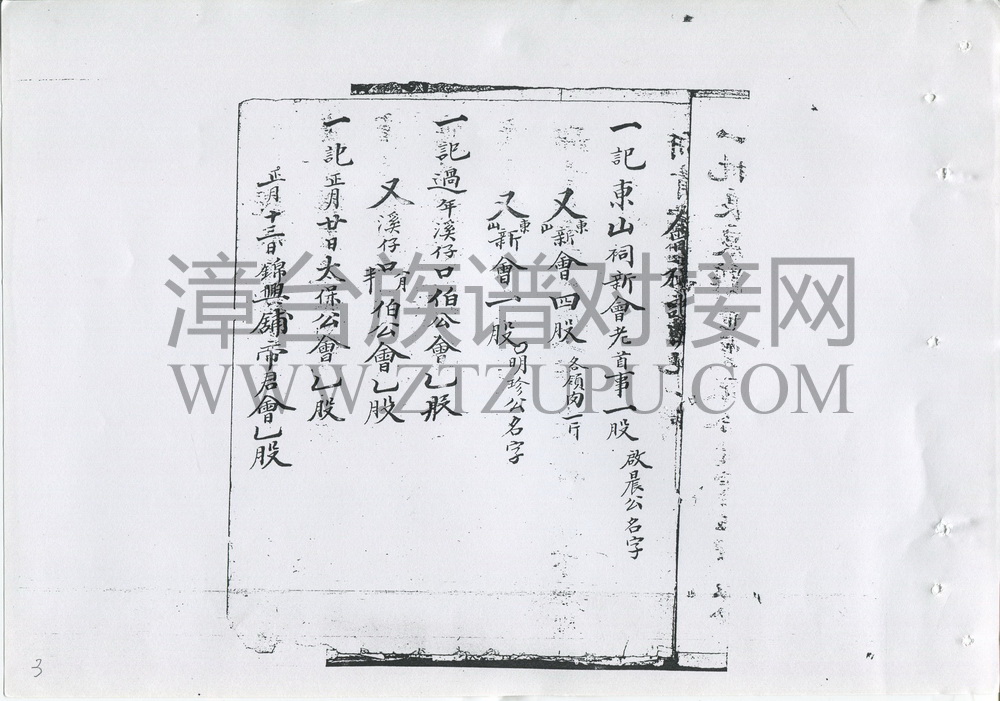 一記東山祠新會老首事一股 啟晨公名字
又東山新會四股 各領肉一斤
又東山新會一股 明珍公名字
一記過年溪仔口伯公會乙股
又溪仔口伯公會乙股 半月
一記正月廿日太保公會乙股
正月十三日錦興鋪帝君會乙股
漳台族谱对接网
WWW.ZTZUPU.COM
3